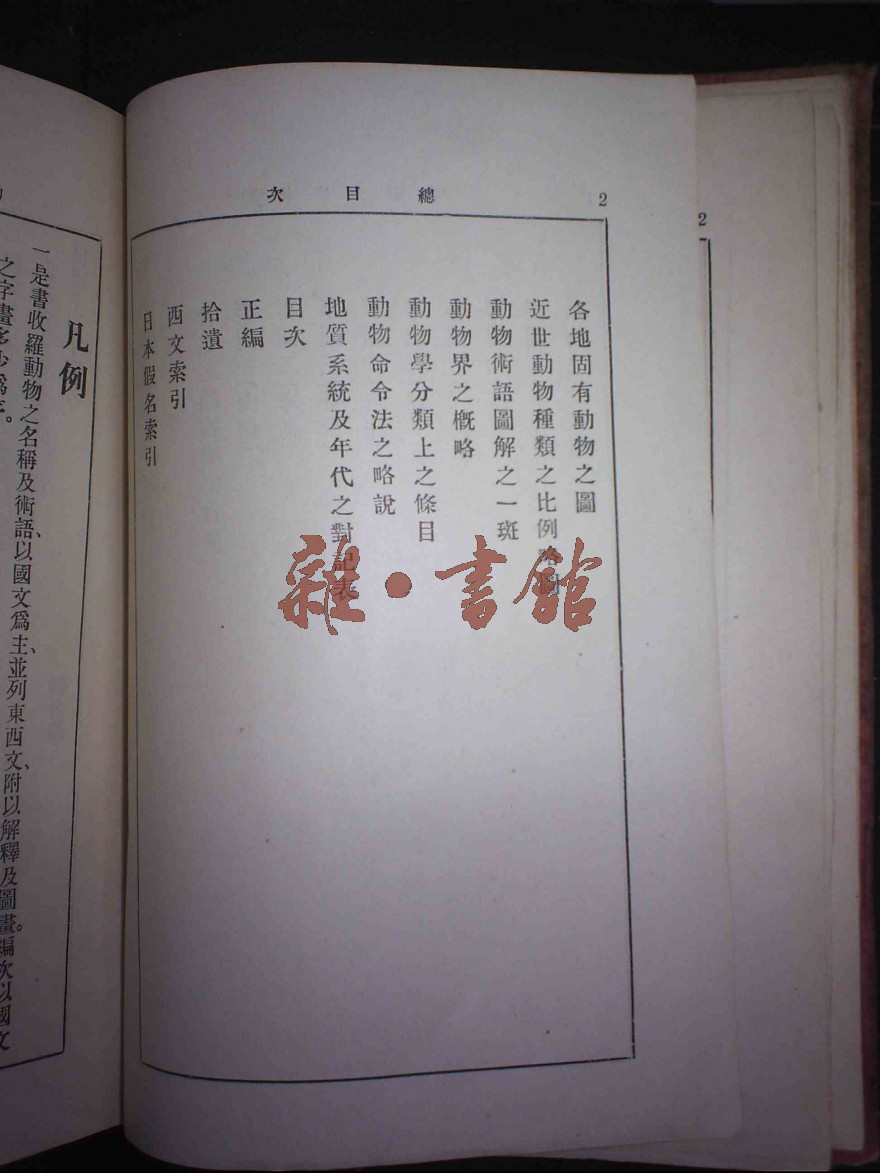 總目次
2
各地固有動物之圖
近世動物種類之比例略圖
動物術語圖解之一斑
動物界之概略
動物學分類上之條目
動物命令法之略說
地質系統及年代之對記表
目次
正編
拾遺
西文索引
日本假名索引
凡例
一是書收羅動物之名稱及術語、以國文爲主、並列東西文、附以解釋及圖畫。編次以國文
之字畫多少爲
雜·書館
2